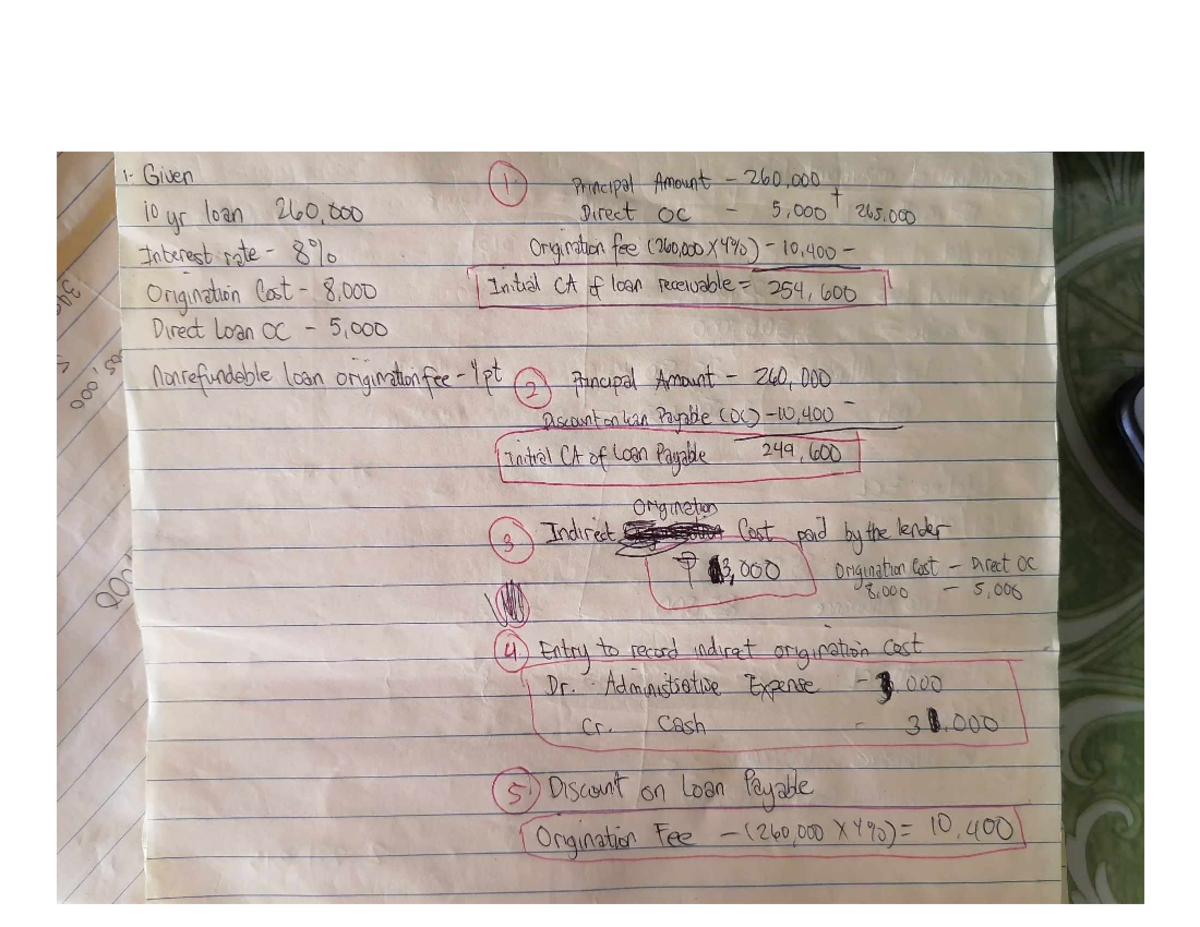 1. Given
10 yr loan 260,000
Interest rate - 8%
Origination Cost - 8,000
Direct Loan OC - 5,000
Nonrefundable loan origination fee - 4pt
1.
Principal Amount - 260,000 +
Direct OC - 5,000 265,000
Origination fee (260,000 X 4%) - 10,400 -
Initial CA of loan receivable = 254,600
2. Principal Amount - 260,000 -
Discount on loan Payable (OC) - 10,400
Initial CA of Loan Payable 249,600
Origination
3. Indirect Cost paid by the lender
₱ 3,000 Origination Cost - Direct OC
8,000 - 5,000
4. Entry to record indirect origination Cost
Dr. Administrative Expense - 3,000
Cr. Cash - 3,000
5. Discount on Loan Payable
Origination Fee - (260,000 X 4%) = 10,400
000